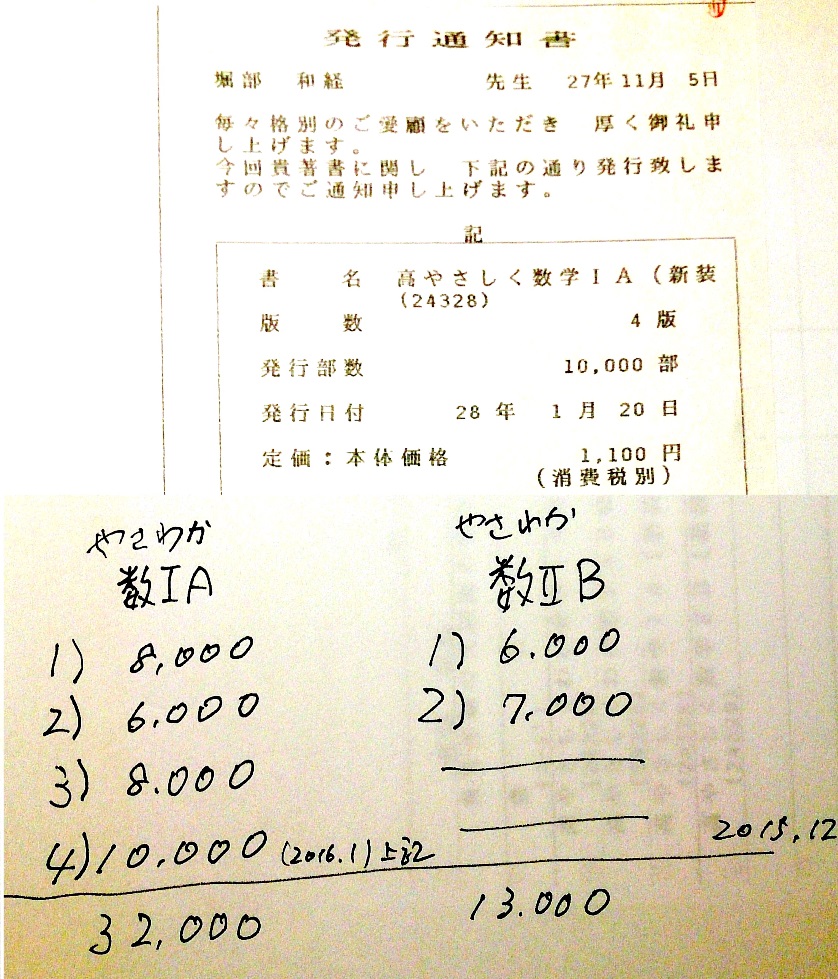 発行通知書
堀部 和経 先生 27年11月 5日
毎々格別のご愛顧をいただき 厚く御礼申
し上げます。
今回貴著書に関し 下記の通り発行致しま
すのでご通知申し上げます。
記
書 名 高やさしく数学ⅠA(新装
(24328)
版 数 4 版
発行部数 10,000 部
発行日付 28 年 1 月 20 日
定価:本体価格 1,100 円
(消費税別)
やさわか
数ⅠA
1) 8,000
2) 6.000
3) 8.000
4) 10.000 (2016.1)上記
32,000
やさわか
数ⅡB
1) 6.000
2) 7.000
2015.12
13.000